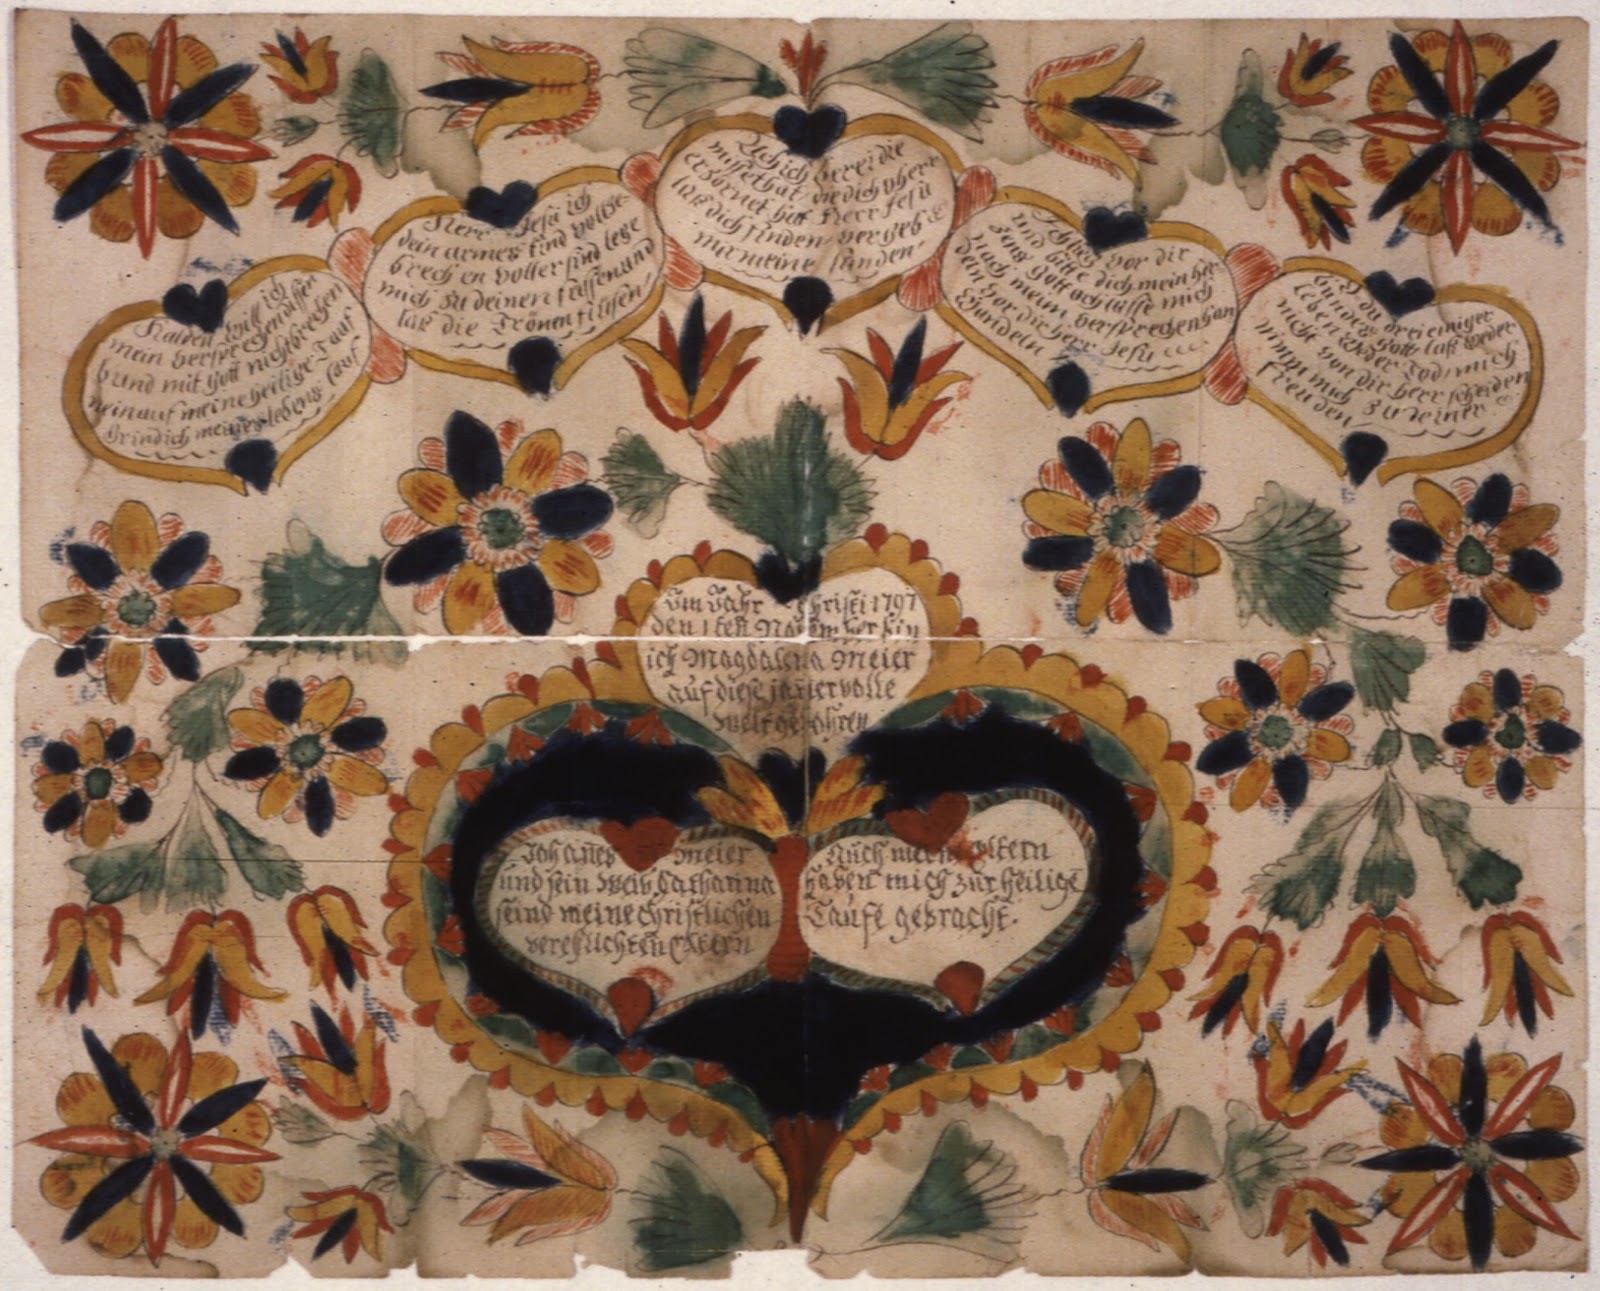 Halden will ich
mein versprechen diesen
bund mit Gott nicht brechen
nein auf meine heilige Tauf
Grind ich meines lebens lauf
Herr Jesu ich
dein armes kind vol lge-
brech en voller sind lege
mich zu deinen füssen und
laß die Trönen fliesen
Ach ich berei die
missethat die dich o herr
erzörnet hatt Herr Jesu
laß dich finden vergeb
mir meine sünden
Ich lieg vor dir
und bitte dich mein her-
zens Gott ach lasse mich
nach mein versprechen han
deln vor dir herr Jesu
Wandeln
O du drei einiger
bundes Gott laß weder
leben weder Tod mich
nicht von dir herr scheiden
nimm mich zu deiner
freuden
Im Jahr Christi 1797
den 1ten November bin
ich Magdalena Meier
auf diese jamervolle
Welt gebohren
Johanes Meier
und sein Weib Catharina
seind meine christlichen
verehlichten Eltern
Auch meine Eltern
haben mich zur heilige
Taufe gebracht.